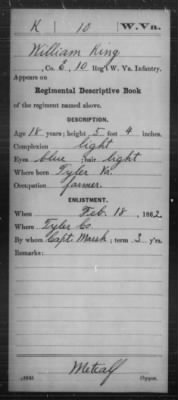 K 10 W.Va.
William King
, Co. E, 10 Reg't W. Va. Infantry.
Appears on
Regimental Descriptive Book
of the regiment named above.
DESCRIPTION.
Age 18 years; height 5 feet 4 inches.
Complexion light
Eyes blue; hair light
Where born Tyler Va.
Occupation farmer
ENLISTMENT.
When Feb. 18, 1862
Where Tyler Co
By whom Capt. Marsh; term 3 y'rs.
Remarks:
Metcalf
Copyist.